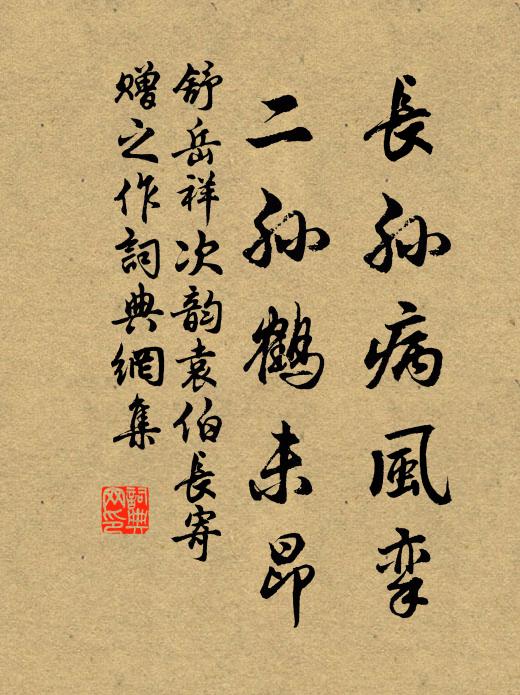 長孫病風挛
二孫鶴未昂
舒岳祥次韵袁伯長寄
贈之作詞典網集
詞典
网印